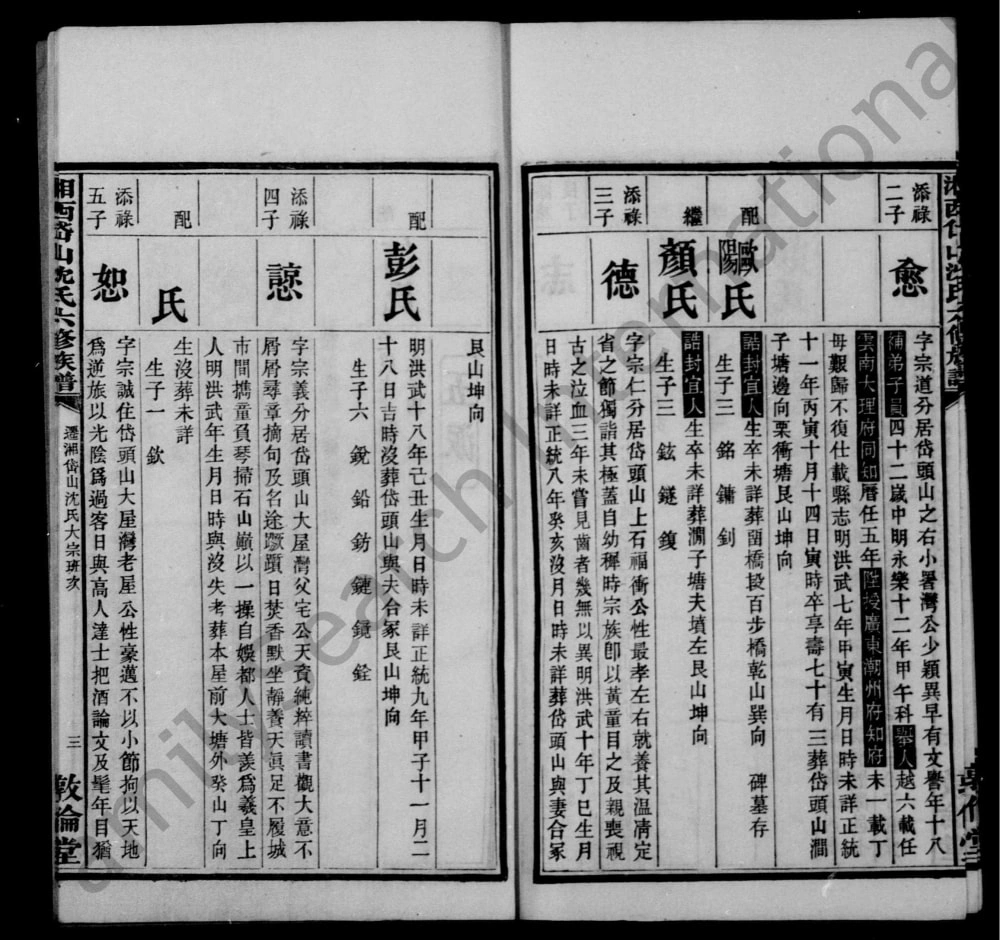 添祿
二子
愈
字宗道分居岱頭山之右小署灣公少穎異早有文譽年十八
補弟子員四十二歲中明永樂十二年甲午科舉人越六載任
雲南大理府同知曆任五年陞授廣東潮州府知府未一載丁
母艱歸不復仕載縣志明洪武七年甲寅生月日時未詳正統
十一年丙寅十月十四日寅時卒享壽七十有三葬岱頭山澗
子塘邊向栗衝塘艮山坤向
配
歐陽氏
誥封宜人生卒未詳葬藺橋段百步橋乾山巽向 碑墓存
生子三 銘 鏞 釗
繼
顏氏
誥封宜人生卒未詳葬澗子塘夫墳左艮山坤向
生子三 鉉 鐩 鍑
添祿
三子
德
字宗仁分居岱頭山上石福衝公性最孝左右就養其温凊定
省之節獨詣其極蓋自幼穉時宗族卽以黃童目之及親喪視
古之泣血三年未嘗見齒者幾無以異明洪武十年丁巳生月
日時未詳正統八年癸亥沒月日時未詳葬岱頭山與妻合冢
艮山坤向
配
彭氏
明洪武十八年亡丑生月日時未詳正統九年甲子十一月二
十八日吉時沒葬岱頭山與夫合冢艮山坤向
生子六 銳 鉛 鈁 鏈 鏡 銓
添祿
四子
諒
字宗義分居岱頭山大屋灣父宅公天資純粹讀書觀大意不
屑屑尋章摘句及名途蹶躓日焚香默坐靜養天眞足不履城
市間攜童負琴掃石山巔以一操自娛都人士皆羨爲羲皇上
人明洪武年生月日時與沒失考葬本屋前大塘外癸山丁向
配
氏
生沒葬未詳
生子一 欽
添祿
五子
恕
字宗誠住岱頭山大屋灣老屋公性豪邁不以小節拘以天地
爲逆旅以光陰爲過客日與高人達士把酒論文及髦年目猶
湘西岱山沈氏六修族譜
遷湘岱山沈氏大宗班次
三
敦倫堂